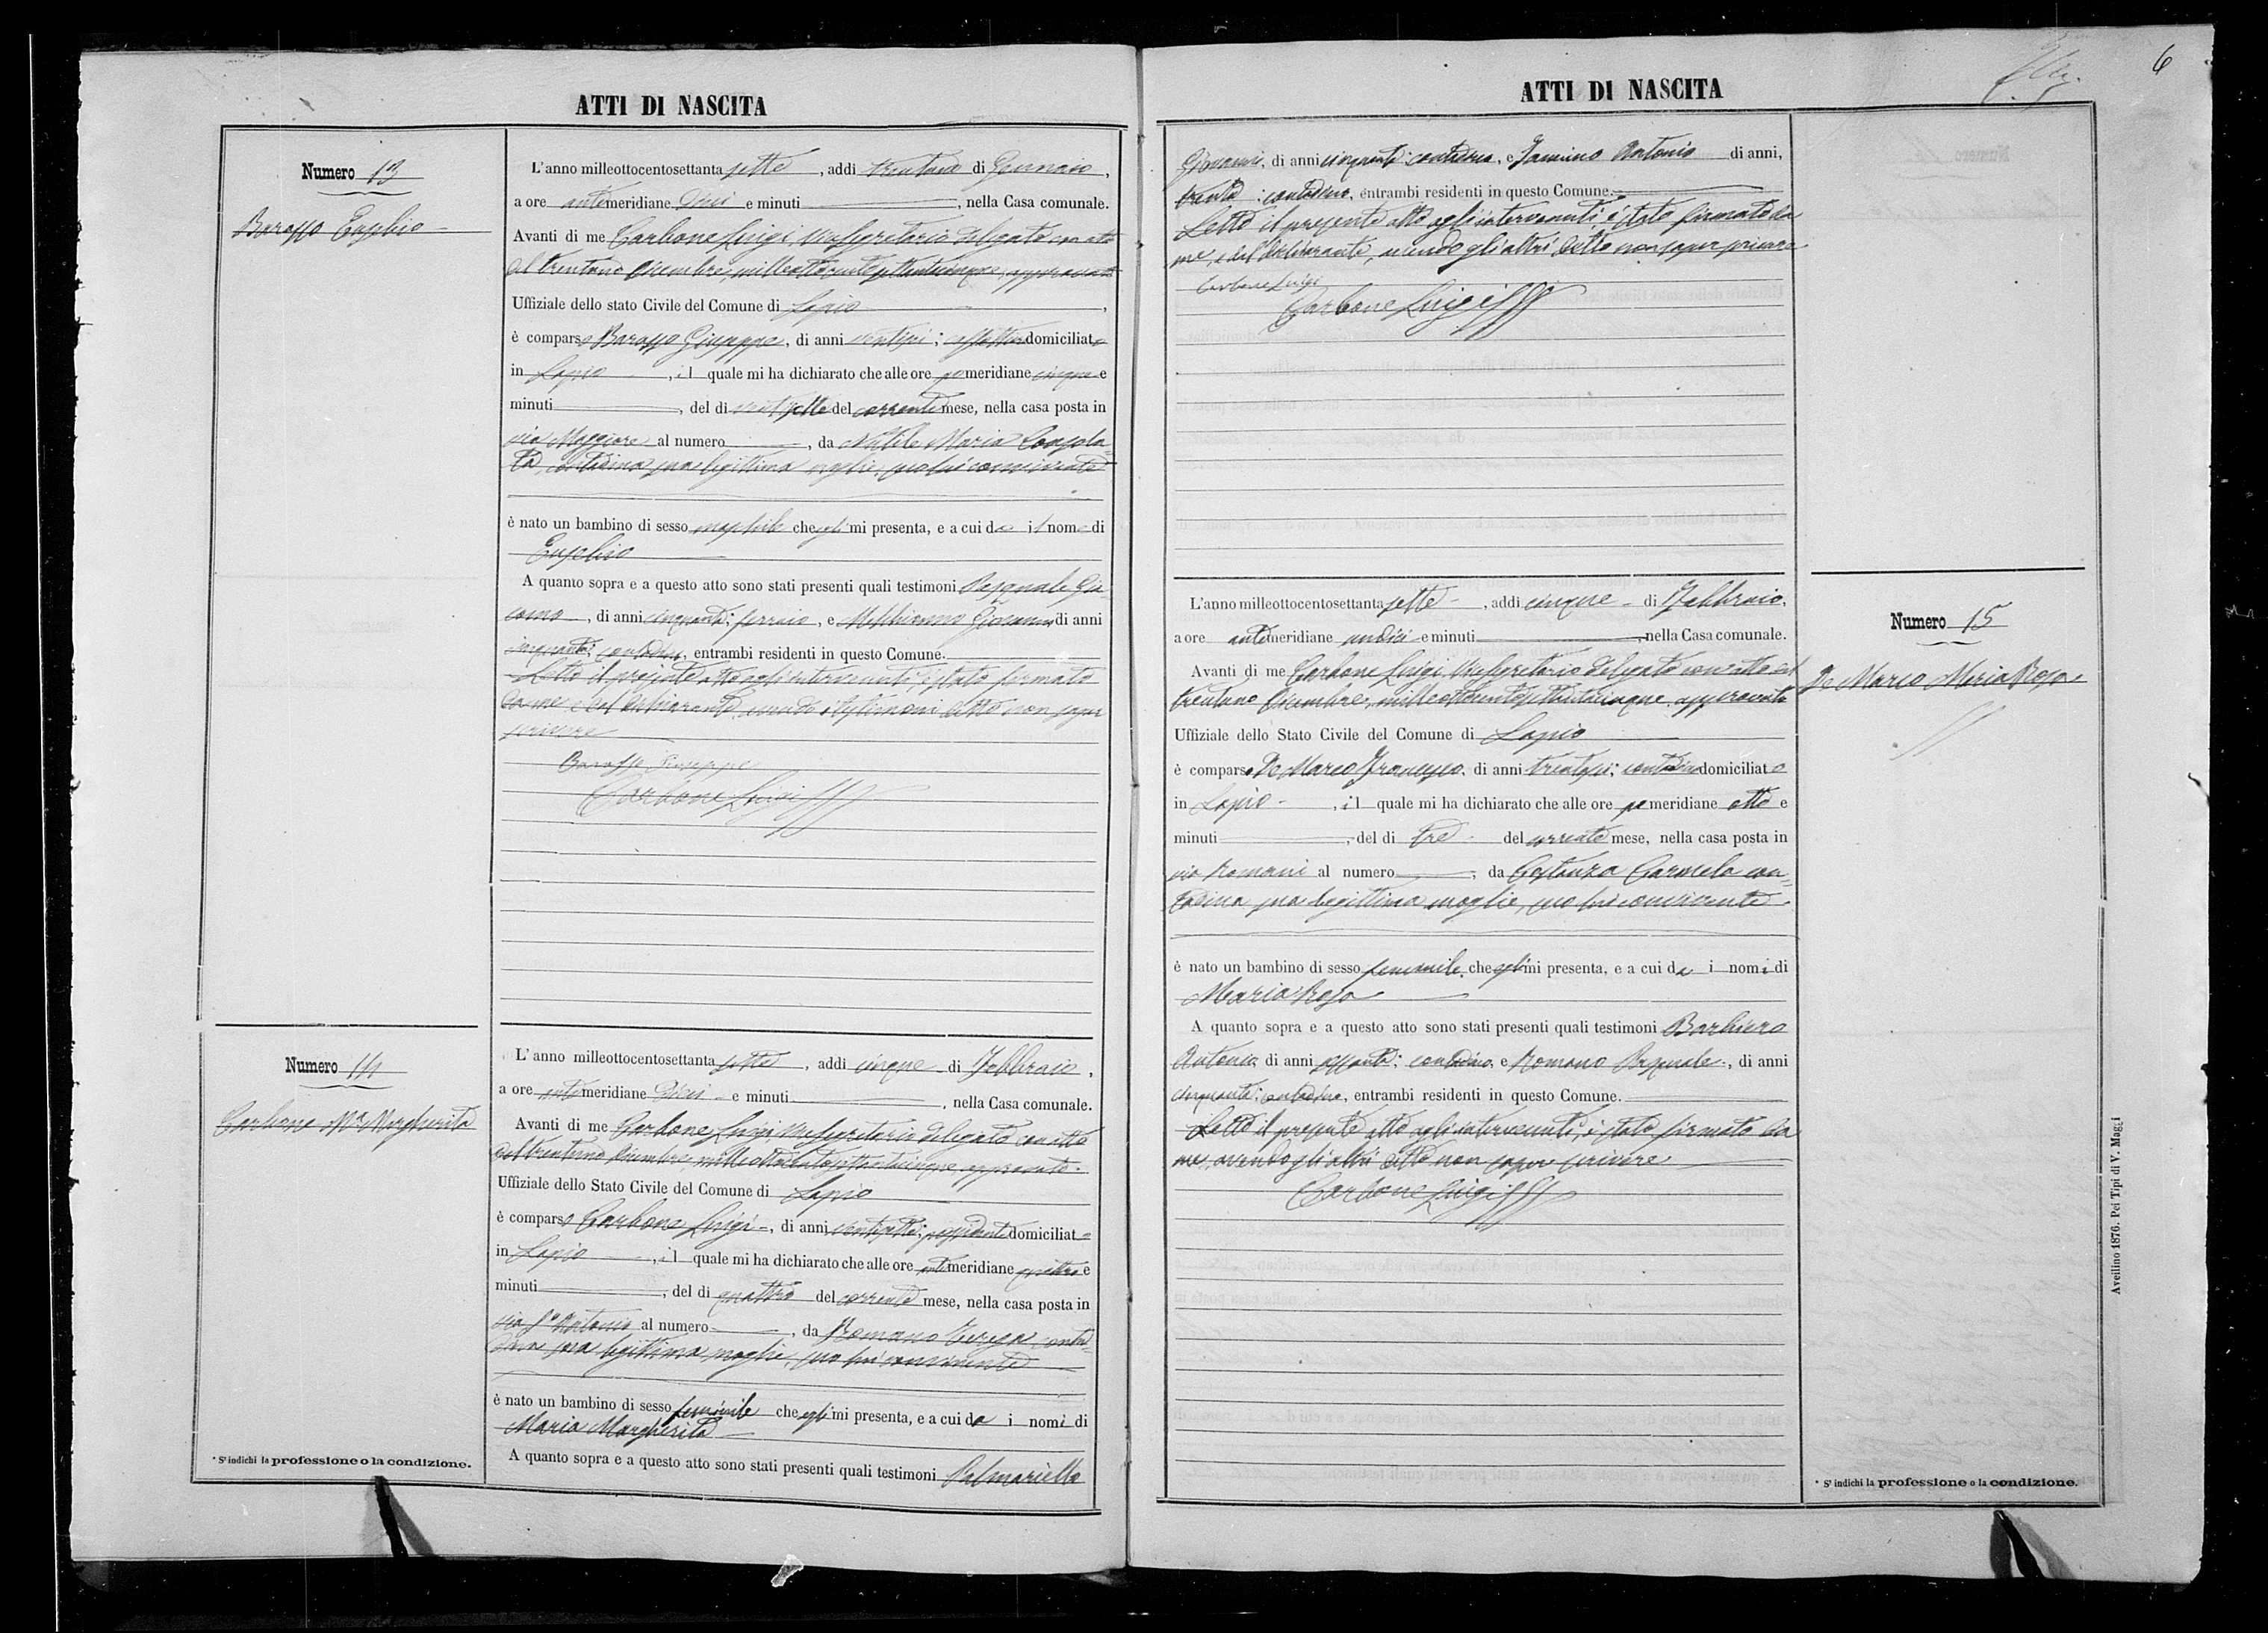 ATTI DI NASCITA
Numero 13
Barasso Eusebio
L'anno milleottocentosettanta sette, addi trentuno di Gennaio,
a ore antimeridiane dieci e minuti, nella Casa comunale.
Avanti di me Carbone Luigi, Vicesegretario delegato con atto
del trentuno Dicembre, milleottocentosettantacinque, approvato
Uffiziale dello stato Civile del Comune di Lapio,
è comparso Barasso Giuseppe, di anni ventisei; domiciliato
in Lapio, il quale mi ha dichiarato che alle ore pomeridiane cinque e
minuti, del di ventisette del corrente mese, nella casa posta in
via Maggiore al numero, da Maria Consola-
ta, contadina sua legittima moglie, seco lui convivente
è nato un bambino di sesso maschile che egli mi presenta, e a cui da il nome di
Eusebio
A quanto sopra e a questo atto sono stati presenti quali testimoni Pasquale Gia-
como, di anni cinquanta; ferraio, e Giovanni di anni
cinquanta; contadino, entrambi residenti in questo Comune.
Letto il presente atto agli intervenuti, è stato firmato
da me e dal dichiarante, avendo i testimoni detto non saper
scrivere
Barasso Giuseppe
Carbone Luigi
Numero 14
Carbone Ma Margherita
L'anno milleottocentosettanta sette, addi cinque di Febbraio,
a ore antimeridiane dieci e minuti, nella Casa comunale.
Avanti di me Carbone Luigi Vicesegretario delegato con atto
del trentuno Dicembre, milleottocentosettantacinque, approvato.
Uffiziale dello Stato Civile del Comune di Lapio
è comparso Carbone Luigi, di anni ventisette; possidente domiciliato
in Lapio, il quale mi ha dichiarato che alle ore antimeridiane quattro e
minuti, del di quattro del corrente mese, nella casa posta in
via Sn Antonio al numero, da Romano Teresa conta-
dina sua legittima moglie, seco lui convivente
è nato un bambino di sesso feminile che egli mi presenta, e a cui da i nomi di
Maria Margherita
A quanto sopra e a questo atto sono stati presenti quali testimoni Palmariello
* Si indichi la professione o la condizione.
6
ATTI DI NASCITA
Giovanni, di anni cinquanta: contadino, e Iannino Antonio di anni,
trenta: contadino, entrambi residenti in questo Comune.
Letto il presente atto agli intervenuti, è stato firmato da
me, e dal dichiarante, avendo gli altri detto non saper scrivere
Carbone Luigi
Carbone Luigi
Numero 15
De Marco Maria Rosa
L'anno milleottocentosettanta sette, addi cinque di Febbraio,
a ore antimeridiane undici e minuti, nella Casa comunale.
Avanti di me Carbone Luigi, Vicesegretario delegato con atto del
trentuno Dicembre, milleottocentosettantacinque, approvato
Uffiziale dello Stato Civile del Comune di Lapio
è comparso De Marco Francesco, di anni trentasei; contadino domiciliato
in Lapio, il quale mi ha dichiarato che alle ore pomeridiane otto e
minuti, del di tre del corrente mese, nella casa posta in
via Romani al numero, da Costanza Carmela con-
tadina sua legittima moglie, seco lui convivente.
è nato un bambino di sesso feminile che egli mi presenta, e a cui da i nomi di
Maria Rosa
A quanto sopra e a questo atto sono stati presenti quali testimoni Barbiero
Antonio, di anni sessanta; contadino, e Romano Pasquale, di anni
cinquanta; contadino, entrambi residenti in questo Comune.
Letto il presente atto agli intervenuti, è stato firmato da
me, avendo gli altri detto non saper scrivere
Carbone Luigi
Avellino 1876. Pei Tipi di V. Maggi
* Si indichi la professione o la condizione.